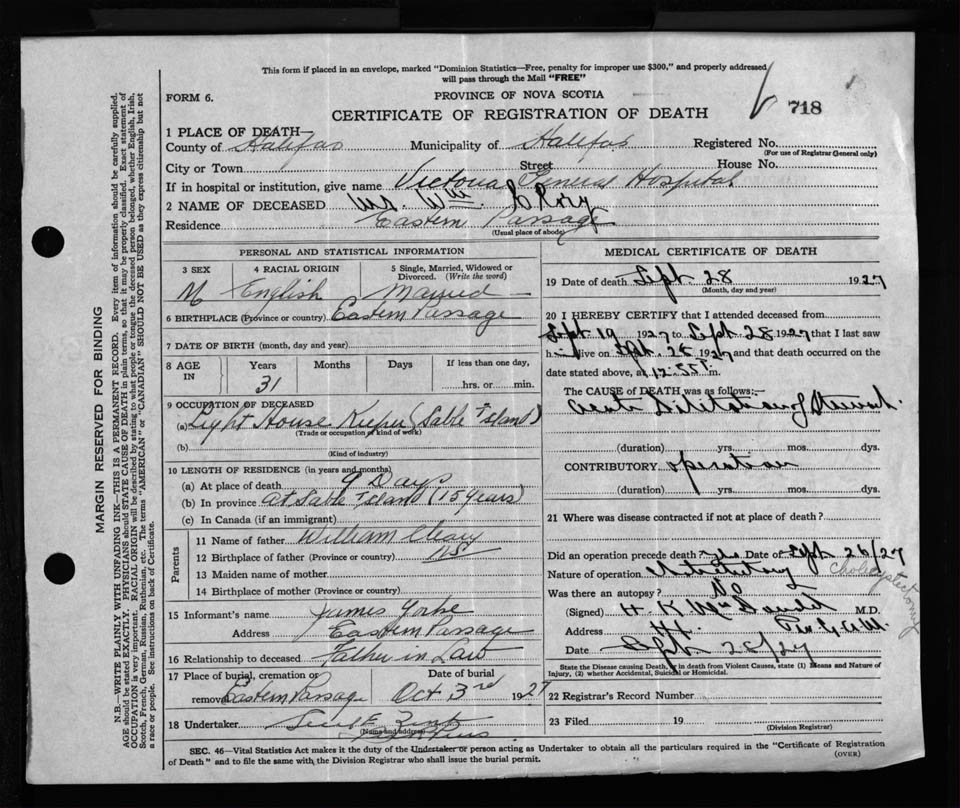 This form if placed in an envelope, marked "Dominion Statistics—Free, penalty for improper use $300," and properly addressed
will pass through the Mail "FREE"
FORM 6.
PROVINCE OF NOVA SCOTIA
718
CERTIFICATE OF REGISTRATION OF DEATH
1 PLACE OF DEATH—
County of Halifax Municipality of Halifax Registered No.
(For use of Registrar General only)
City or Town Street House No.
If in hospital or institution, give name Victoria General Hospital
2 NAME OF DECEASED Mr Wm
Residence Eastern Passage
(Usual place of abode)
PERSONAL AND STATISTICAL INFORMATION
3 SEX 4 RACIAL ORIGIN 5 Single, Married, Widowed or Divorced. (Write the word)
M English Married
6 BIRTHPLACE (Province or country) Eastern Passage
7 DATE OF BIRTH (month, day and year)
8 AGE IN Years Months Days If less than one day,
31 hrs. or min.
9 OCCUPATION OF DECEASED
(a) Light House Keeper (Sable Island)
(Trade or occupation of kind of work)
(b)
(Kind of industry)
10 LENGTH OF RESIDENCE (in years and months)
(a) At place of death 9 Days
(b) In province at Sable Island (15 years)
(c) In Canada (if an immigrant)
Parents
11 Name of father William Cleary
12 Birthplace of father (Province or country) NS
13 Maiden name of mother
14 Birthplace of mother (Province or country)
15 Informant's name James Yorke
Address Eastern Passage
16 Relationship to deceased Father in Law
17 Place of burial, cremation or removal Date of burial
Eastern Passage Oct 3rd 1927
18 Undertaker
(Name and address)
MEDICAL CERTIFICATE OF DEATH
19 Date of death Sept 28 1927
(Month, day and year)
20 I HEREBY CERTIFY that I attended deceased from
Sept 19 1927 to Sept 28 1927 that I last saw
h alive on Sept 28 1927 and that death occurred on
date stated above, at 12.55
The CAUSE OF DEATH was as follows:—
Acute Dilitation of Stomach.
(duration) yrs. mos. dys.
CONTRIBUTORY operation
(duration) yrs. mos. dys.
21 Where was disease contracted if not at place of death?
Did an operation precede death? Yes Date of Sept 26/27
Nature of operation Cholecystectomy
Was there an autopsy? No
(Signed) H. K. McDonald M.D.
Address
Date Sept 28/27
State the Disease causing Death, or in death from Violent Causes, state (1) Means and Nature of
Injury, (2) whether Accidental, Suicidal or Homicidal.
22 Registrar's Record Number
23 Filed 19
(Division Registrar)
SEC. 46—Vital Statistics Act makes it the duty of the Undertaker or person acting as Undertaker to obtain all the particulars required in the "Certificate of Registration
of Death" and to file the same with the Division Registrar who shall issue the burial permit.
(OVER)
MARGIN RESERVED FOR BINDING
N.B.—WRITE PLAINLY WITH UNFADING INK.—THIS IS A PERMANENT RECORD. Every item of information should be carefully supplied.
AGE should be stated EXACTLY. PHYSICIANS should STATE CAUSE OF DEATH in plain terms, so that it may be properly classified. Exact statement of
OCCUPATION is very important. RACIAL ORIGIN will be described by stating to what people or tongue the deceased person belonged, whether English, Irish,
Scotch, French, German, Russian, Ruthenian, etc. The terms "AMERICAN" or "CANADIAN" SHOULD NOT BE USED as they express citizenship but not
a race or people. See instructions on back of Certificate.